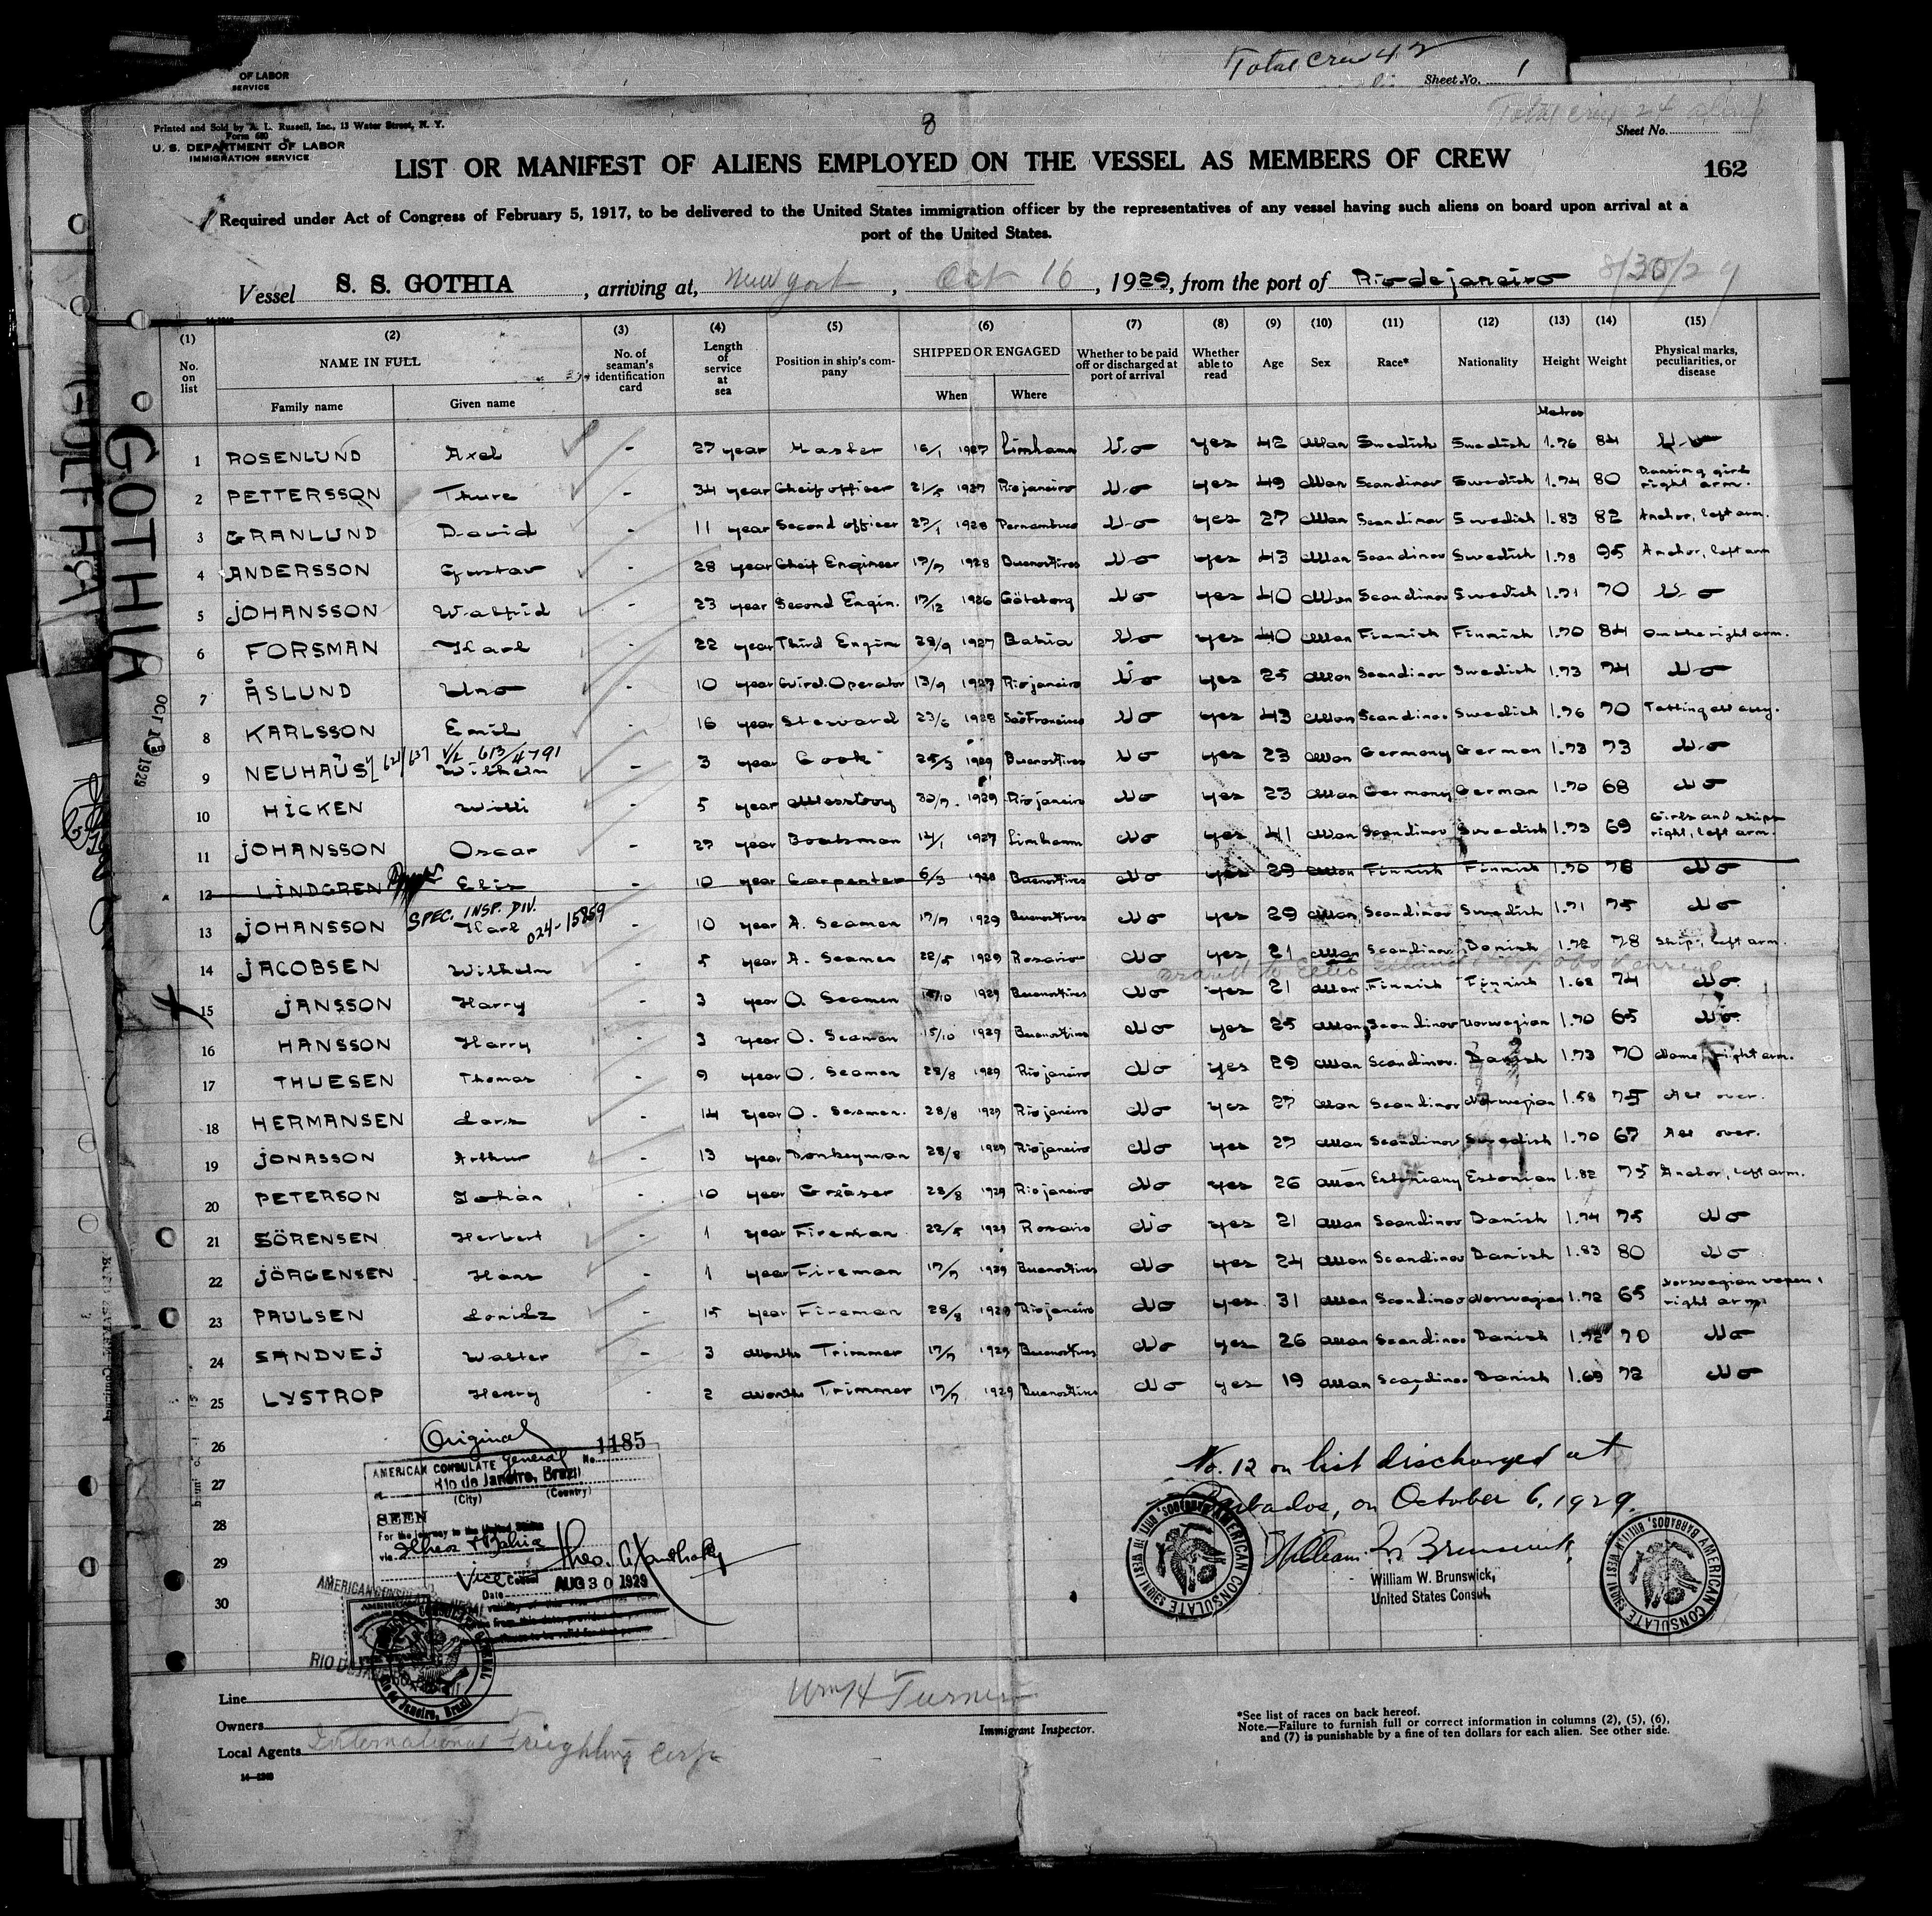 Total Crew 42
Sheet No. 1
OF LABOR
SERVICE
Total crew 24 aliens
Sheet No.
Printed and Sold by A. L. Russell, Inc., 13 Water Street, N. Y.
Form 680
U. S. DEPARTMENT OF LABOR
IMMIGRATION SERVICE
8
LIST OR MANIFEST OF ALIENS EMPLOYED ON THE VESSEL AS MEMBERS OF CREW
162
Required under Act of Congress of February 5, 1917, to be delivered to the United States immigration officer by the representatives of any vessel having such aliens on board upon arrival at a
port of the United States.
Vessel S. S. GOTHIA, arriving at, New York, Oct 16, 1929, from the port of Rio de janeiro 8/30/29
(1) (2) (3) (4) (5) (6) (7) (8) (9) (10) (11) (12) (13) (14) (15)
No. on list NAME IN FULL Family name Given name No. of seaman's identification card Length of service at sea Position in ship's company SHIPPED OR ENGAGED When Where Whether to be paid off or discharged at port of arrival Whether able to read Age Sex Race* Nationality Height Weight Physical marks, peculiarities, or disease
Metres
1 ROSENLUND Axel - 27 year Master 16/1 1927 Limhamn No yes 42 Man Swedish Swedish 1.76 84 No
2 PETTERSSON Thure - 34 year Cheif officer 21/5 1927 Riojaneiro No yes 49 Man Scandinav Swedish 1.74 80 Dancing girl right arm.
3 GRANLUND David - 11 year Second officer 27/1 1928 Pernambuco No yes 27 Man Scandinav Swedish 1.83 82 Anchor, left arm.
4 ANDERSSON Gustav - 28 year Cheif Engineer 17/7 1928 BuenosAires No yes 43 Man Scandinav Swedish 1.78 95 Anchor, left arm
5 JOHANSSON Walfrid - 23 year Second Engin. 17/12 1926 Göteborg No yes 40 Man Scandinav Swedish 1.71 70 No
6 FORSMAN Karl - 22 year Third Engin 28/9 1927 Bahia No yes 40 Man Finnish Finnish 1.70 84 On the right arm.
7 ÅSLUND Uno - 10 year Wirel. Operator 13/9 1927 Riojaneiro No yes 25 Man Scandinav Swedish 1.73 74 No
8 KARLSSON Emil - 16 year Steward 23/6 1928 SaoFrancisco No yes 43 Man Scandinav Swedish 1.76 70
621/637 V/L 613/4791
9 NEUHÄUS Wilhelm - 3 year Cook 25/3 1929 BuenosAires No yes 23 Man Germany German 1.73 73 No
10 HICKEN Willi 5 year Messboy 30/7 1929 Riojaneiro No yes 23 Man Germany German 1.70 68 No
11 JOHANSSON Oscar - 27 year Boatsman 14/1 1927 Limhamn No yes 41 Man Scandinav Swedish 1.73 69 Girls and ships right, left arm.
12 LINDGREN Elis - 10 year Carpenter 6/3 1928 BuenosAires No yes 29 Man Finnish Finnish 1.70 78 No
SPEC. INSP. DIV. 024-15859
13 JOHANSSON Karl - 10 year A. Seamen 17/7 1929 BuenosAires No yes 29 Man Scandinav Swedish 1.71 75 No
14 JACOBSEN Wilhelm - 5 year A. Seamen 22/5 1929 Rosario No yes 21 Man Scandinav Danish 1.72 78 Ship, left arm.
15 JANSSON Harry - 3 year O. Seamen 15/10 1929 BuenosAires No yes 21 Man Finnish Finnish 1.68 74 No
16 HANSSON Harry - 3 year O. Seaman 15/10 1929 BuenosAires No yes 25 Man Scandinav Norwegian 1.70 65 No
17 THUESEN Thomas - 9 year O. Seamen 28/8 1929 Riojaneiro No yes 29 Man Scandinav. Danish 1.73 70 Name, right arm.
18 HERMANSEN Lars - 14 year O. Seamen. 28/8 1929 Riojaneiro No yes 27 Man Scandinav Norwegian 1.58 75 All over.
19 JONASSON Arthur - 13 year Donkeyman 28/8 1929 Riojaneiro No yes 27 Man Scandinav Swedish 1.70 67 All over.
20 PETERSON Johan - 10 year Greaser 28/8 1929 Riojaneiro No yes 26 Man Estoniany Estonian 1.82 75 Anchor, left arm.
21 SÖRENSEN Herbert - 1 year Fireman 22/5 1929 Rosario No yes 21 Man Scandinav Danish 1.74 75 No
22 JÖRGENSEN Hans - 1 year Fireman 17/7 1929 BuenosAires No yes 24 Man Scandinav Danish 1.83 80 No
23 PAULSEN - 15 year Fireman 28/8 1929 Riojaneiro No yes 31 Man Scandinav Norwegian 1.72 65 Norwegian vapen, right arm
24 SANDVEJ Walter - 3 Months Trimmer 17/7 1929 BuenosAires No yes 26 Man Scandinav Danish 1.72 70 No
25 LYSTROP Henry - 2 Months Trimmer 17/7 1929 BuenosAires No yes 19 Man Scandinav Danish 1.69 72 No
26
27
28
29
30
GOTHIA
OCT 1929
Original
AMERICAN CONSULATE General No. 1185
Rio de Janeiro, Brazil
(City) (Country)
SEEN
For the journey to the United States
via Ilheos & Bahia
Vice Consul
Date AUG 30 1929
No. 12 on list discharged at
Barbados, on October 6, 1929.
William W. Brunswick
William W. Brunswick,
United States Consul.
AMERICAN CONSULATE BARBADOS, BRITISH WEST INDIES
AMERICAN CONSULATE BARBADOS, BRITISH WEST INDIES
AMERICAN CONSULATE GENERAL
Rio de Janeiro, Brazil
Line
Owners
Local Agents International Freighting Corp
14-1240
Wm H Turner
Immigrant Inspector.
*See list of races on back hereof.
Note.—Failure to furnish full or correct information in columns (2), (5), (6),
and (7) is punishable by a fine of ten dollars for each alien. See other side.